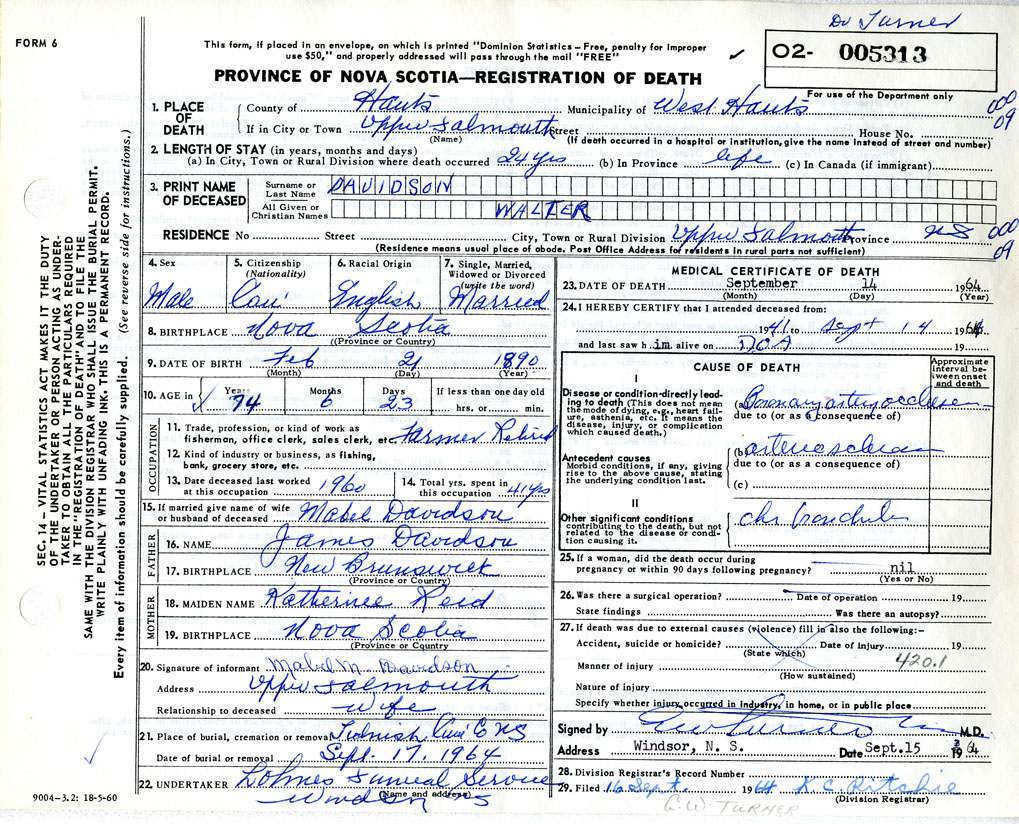 Dr Turner
FORM 6
This form, if placed in an envelope, on which is printed "Dominion Statistics – Free, penalty for improper
use $50," and properly addressed will pass through the mail "FREE"
✓
O2- 005313
PROVINCE OF NOVA SCOTIA—REGISTRATION OF DEATH
For use of the Department only
1. PLACE OF DEATH
County of Hants Municipality of West Hants 000
09
If in City or Town Upper Falmouth Street House No.
(Name) (If death occurred in a hospital or institution, give the name instead of street and number)
2. LENGTH OF STAY (in years, months and days)
(a) In City, Town or Rural Division where death occurred 24 yrs (b) In Province life (c) In Canada (if immigrant)
3. PRINT NAME OF DECEASED
Surname or Last Name DAVIDSON
All Given or Christian Names WALTER
RESIDENCE No Street City, Town or Rural Division Upper Falmouth Province NS 000
09
(Residence means usual place of abode. Post Office Address for residents in rural parts not sufficient)
4. Sex Male
5. Citizenship (Nationality) Can
6. Racial Origin English
7. Single, Married, Widowed or Divorced (write the word) Married
8. BIRTHPLACE Nova Scotia
(Province or Country)
9. DATE OF BIRTH Feb 21 1890
(Month) (Day) (Year)
10. AGE in ✓ Years 74 Months 6 Days 23 If less than one day old
hrs. or min.
OCCUPATION
11. Trade, profession, or kind of work as
fisherman, office clerk, sales clerk, etc. Farmer Retired
12. Kind of industry or business, as fishing,
bank, grocery store, etc.
13. Date deceased last worked
at this occupation 1960
14. Total yrs. spent in
this occupation 41 yrs
15. If married give name of wife
or husband of deceased Mabel Davidson
FATHER
16. NAME James Davidson
17. BIRTHPLACE New Brunswick
(Province or Country)
MOTHER
18. MAIDEN NAME Katherine Reid
19. BIRTHPLACE Nova Scotia
(Province or Country)
20. Signature of informant Mabel M. Davidson
Address Upper Falmouth
Relationship to deceased Wife
21. Place of burial, cremation or removal NS
Date of burial or removal Sept. 17, 1964
22. UNDERTAKER Funeral Service
(Name and address)
Windsor NS
MEDICAL CERTIFICATE OF DEATH
23. DATE OF DEATH September 14 1964
(Month) (Day) (Year)
24. I HEREBY CERTIFY that I attended deceased from:
1941 to Sept 14 1964
and last saw h.im. alive on DOA 19
CAUSE OF DEATH
Approximate interval between onset and death
I
Disease or condition directly leading to death (This does not mean the mode of dying, e.g., heart failure, asthenia, etc. It means the disease, injury, or complication which caused death.)
(a) Coronary artery occlusion
due to (or as a consequence of)
Antecedent causes
Morbid conditions, if any, giving rise to the above cause, stating the underlying condition last.
(b) arteriosclerosis
due to (or as a consequence of)
(c)
II
Other significant conditions contributing to the death, but not related to the disease or condition causing it.
chr bronchitis
25. If a woman, did the death occur during
pregnancy or within 90 days following pregnancy? nil
(Yes or No)
26. Was there a surgical operation? Date of operation 19
State findings Was there an autopsy?
27. If death was due to external causes (violence) fill in also the following:–
Accident, suicide or homicide? Date of injury 19
(State which)
420.1
Manner of injury
(How sustained)
Nature of injury
Specify whether injury occurred in industry, in home, or in public place
Signed by CW Turner M.D.
Address Windsor, N. S. Date Sept. 15 1964
28. Division Registrar's Record Number
29. Filed 16 Sept. 1964 K C Ritchie
(Division Registrar)
C.W. TURNER
SEC. 14 – VITAL STATISTICS ACT MAKES IT THE DUTY
OF THE UNDERTAKER OR PERSON ACTING AS UNDER-
TAKER TO OBTAIN ALL THE PARTICULARS REQUIRED
IN THE "REGISTRATION OF DEATH" AND TO FILE THE
SAME WITH THE DIVISION REGISTRAR WHO SHALL ISSUE THE BURIAL PERMIT.
WRITE PLAINLY WITH UNFADING INK. THIS IS A PERMANENT RECORD.
Every item of information should be carefully supplied. (See reverse side for instructions.)
9004-3.2: 18-5-60